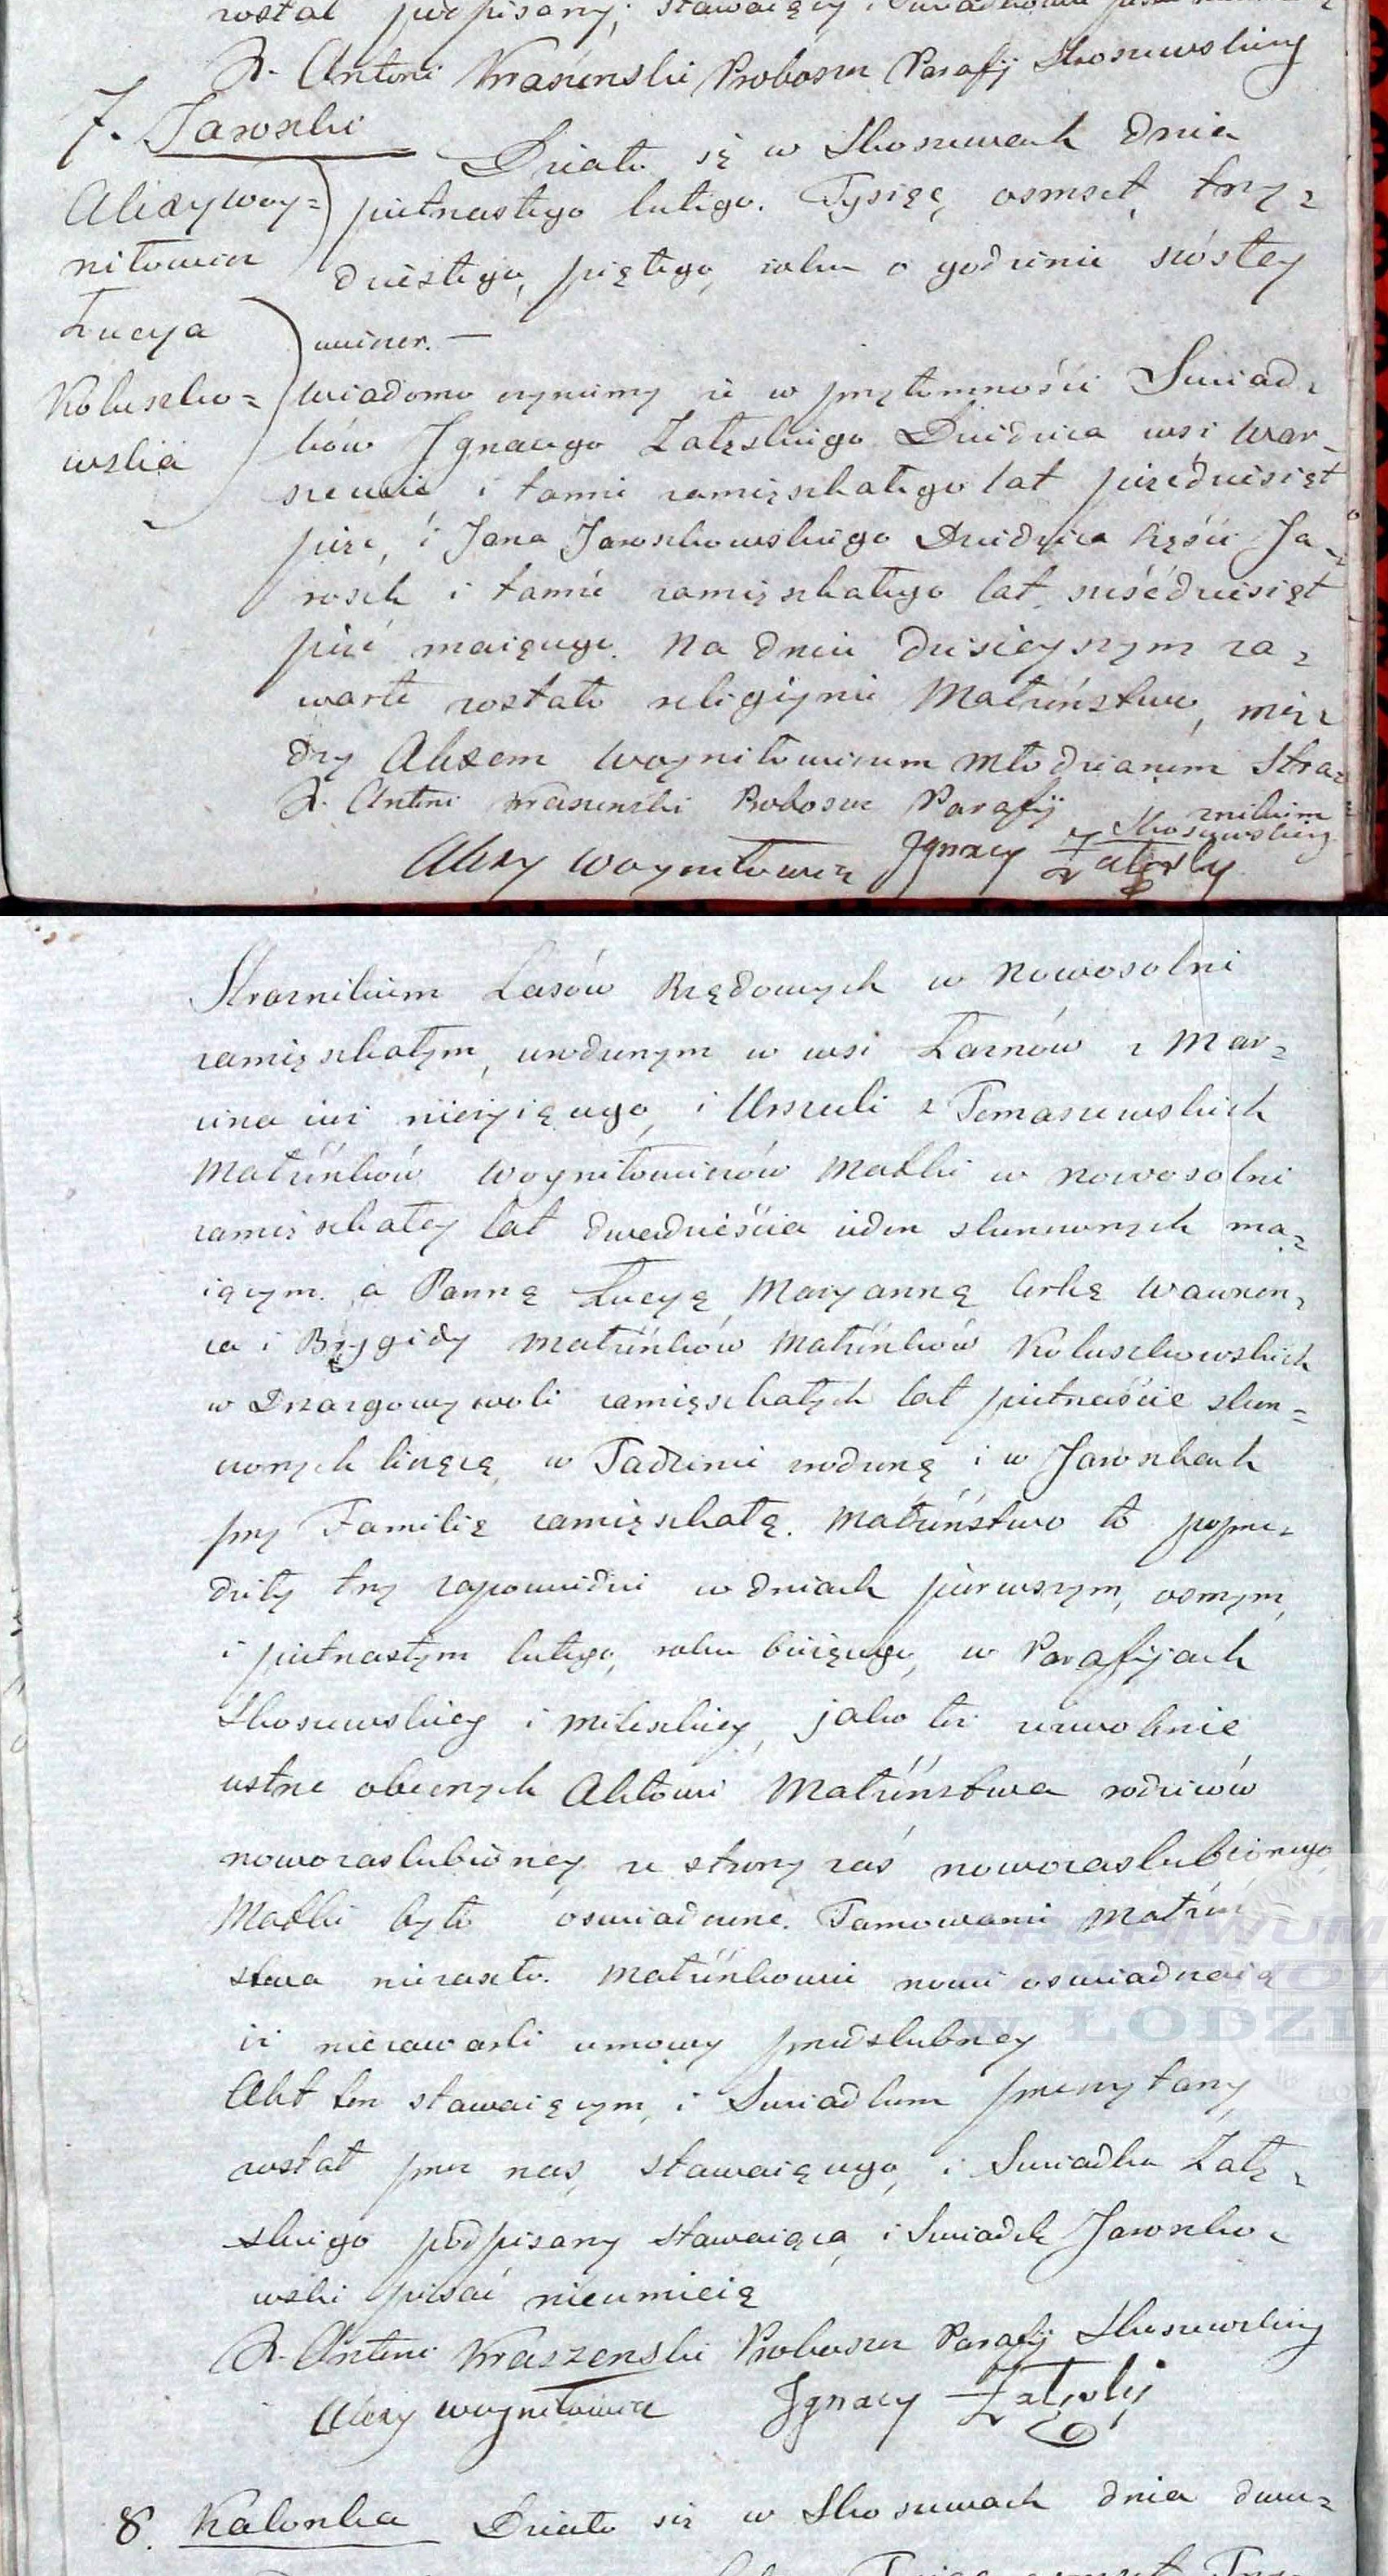 został podpisany, stawaiący i Swiadkowie
X. Antoni Kraszenski Proboszcz Parafij Skoszewskiey
7. Jaroszki
Działo się w Skoszewach dnia
Alexy Woy=
pietnastego lutego. Tysiąc, osmset, trzy=
niłowicz
dziestego, piątego, roku o godzinie szóstey
Łucya
wieczor. —
Koluszko=
wiadomo czynimy że w przytomności Swiad=
wska
ków Ignacego Załęskiego Dziedzica wsi War=
szewic i tamże zamięszkałego lat pięćdziesiąt
pięć, i Jana Jaroszkowskiego Dziedzica Częsci Ja=
roszk i tamże zamięszkałego lat sześćdziesiąt
pięć maiącego. Na dniu dzisieyszym za=
warte zostało religiynie Małżeństwo, mię=
dzy Alexem Woyniłowiczem Młodzianem Stra=
żnikiem
X. Antoni Kraszenski Proboszcz Parafij Skoszewskiey
Alexy Woyniłowicz Ignacy Załęsky
Strażnikiem Lasów Rządowych w Nowosolni
zamięszkałym, urodzonym w wsi Łaznów z Mar=
cina iuż nieżyiącego, i Urszuli z Tomaszewskich
Małżonków Woyniłowiczów Matki w Nowosolni
zamięszkałey lat dwadzieścia ieden skonczonych ma=
iącym. a Panną Łucyą Maryanną Corką Wawrzen=
ca i Brygidy Małżonków Małżonków Koluszkowskich
w Drzazgowy woli zamięszkałych lat pietnaście skon=
czonych liczącą, w Tadzinie zrodzoną i w Jaroszkach
przy Familię zamięszkałą. Małżeństwo to poprze=
dziły trzy zapowiedzi w dniach pierwszym, osmym,
i pietnastym lutego, roku bieżącego, w Parafijach
Skoszewskiey i Mileszkiey, jako też zezwolenie
ustne obecnych Aktowi Małżeństwa rodziców
nowozaslubioney ze strony zaś nowozaslubionego
Matki było oswiadczone. Tamowanie Małżeń
stwa niezaszło. Małżonkowie nowi oswiadczaią
iż niezawarli umowy przedslubney
Akt ten stawaiącym, i Swiadkom przeczytany
został przez nas, stawaiącego, i Swiadka Załę=
skiego podpisany stawaiąca, i Swiadek Jaroszko=
wski pisać nieumieią
X. Antoni Kraszenski Proboszcz Parafij Skoszewskiey
Alexy Woyniłowicz Ignacy Załęskij
ARCHIWUM
W ŁODZI
8. Kalonka Działo się w Skoszewach dnia dwu=